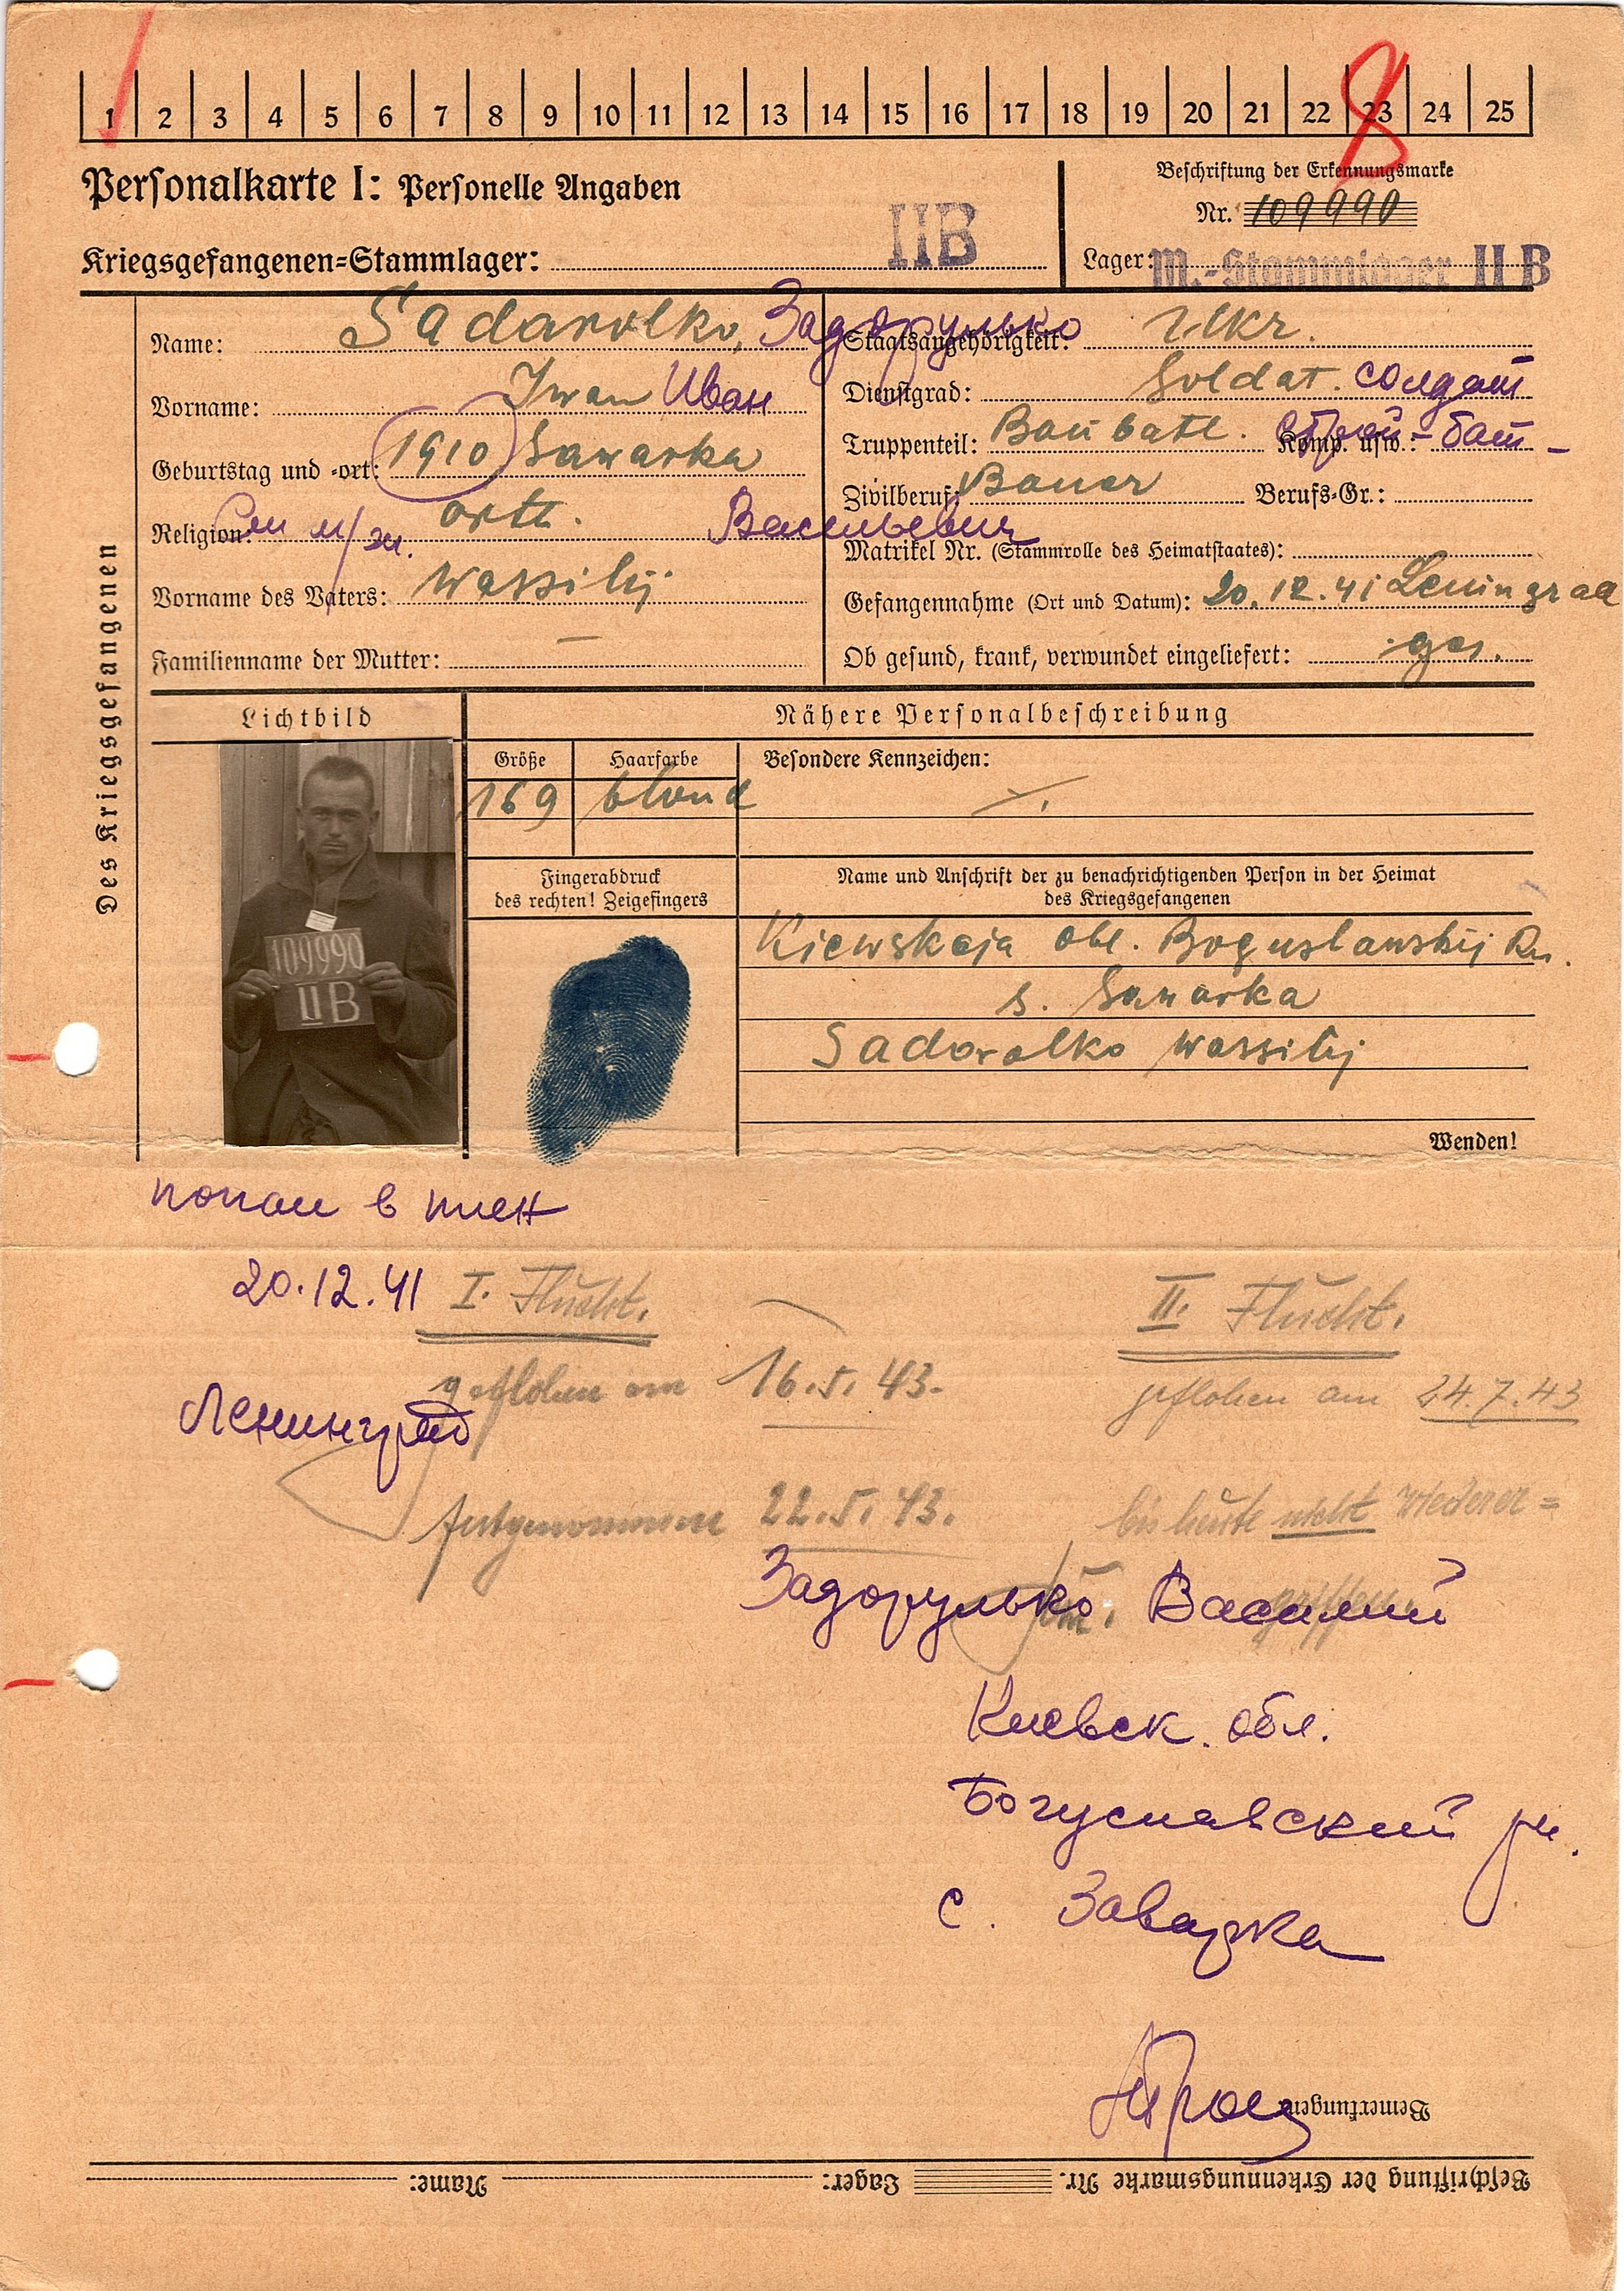 1 2 3 4 5 6 7 8 9 10 11 12 13 14 15 16 17 18 19 20 21 22 23 24 25
8
Personalkarte I: Personelle Angaben
Kriegsgefangenen-Stammlager: II B
Beschriftung der Erkennungsmarke
Nr. 109990
Lager: M.-Stammlager II B
Des Kriegsgefangenen
Name: Sadarolko, Задорулько
Vorname: Iwan Иван
Geburtstag und -ort: 1910 Sawarka
Religion: orth.
Васильевич
Vorname des Vaters: Wassilij
Familienname der Mutter: —
Staatsangehörigkeit: Ukr.
Dienstgrad: Soldat. солдат
Truppenteil: Baubatl. Komp. usw.: строй-бат-
Zivilberuf: Bauer Berufs-Gr.:
Matrikel Nr. (Stammrolle des Heimatstaates):
Gefangennahme (Ort und Datum): 20.12.41 Leningrad
Ob gesund, krank, verwundet eingeliefert: ges.
Lichtbild
109990
II B
Nähere Personalbeschreibung
Größe Haarfarbe Besondere Kennzeichen:
169 blond
Fingerabdruck
des rechten! Zeigefingers
Name und Anschrift der zu benachrichtigenden Person in der Heimat
des Kriegsgefangenen
Kiewskaja obl. Boguslawskij Rn.
s. Sawarka
Sadorolko Wassilij
Wenden!
попал в плен
20.12.41
Ленинград
I. Flucht.
geflohen am 16.5.43.
festgenommen 22.5.43.
II. Flucht.
geflohen am 24.7.43
bis heute nicht wiederer=
griffen.
Задорулько Василий
Киевск. обл.
Богуславский рн.
с. Заварка
Bemerkungen:
Beschriftung der Erkennungsmarke Nr. Lager: Name: